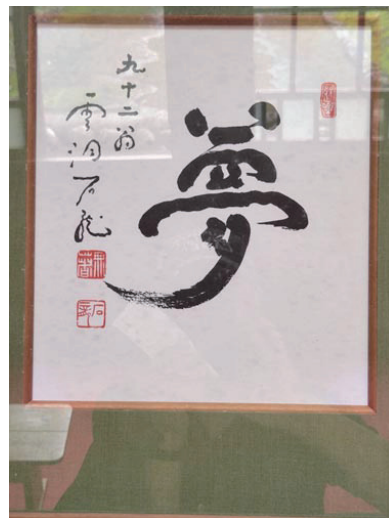 夢
九十二翁
雲洞石龍